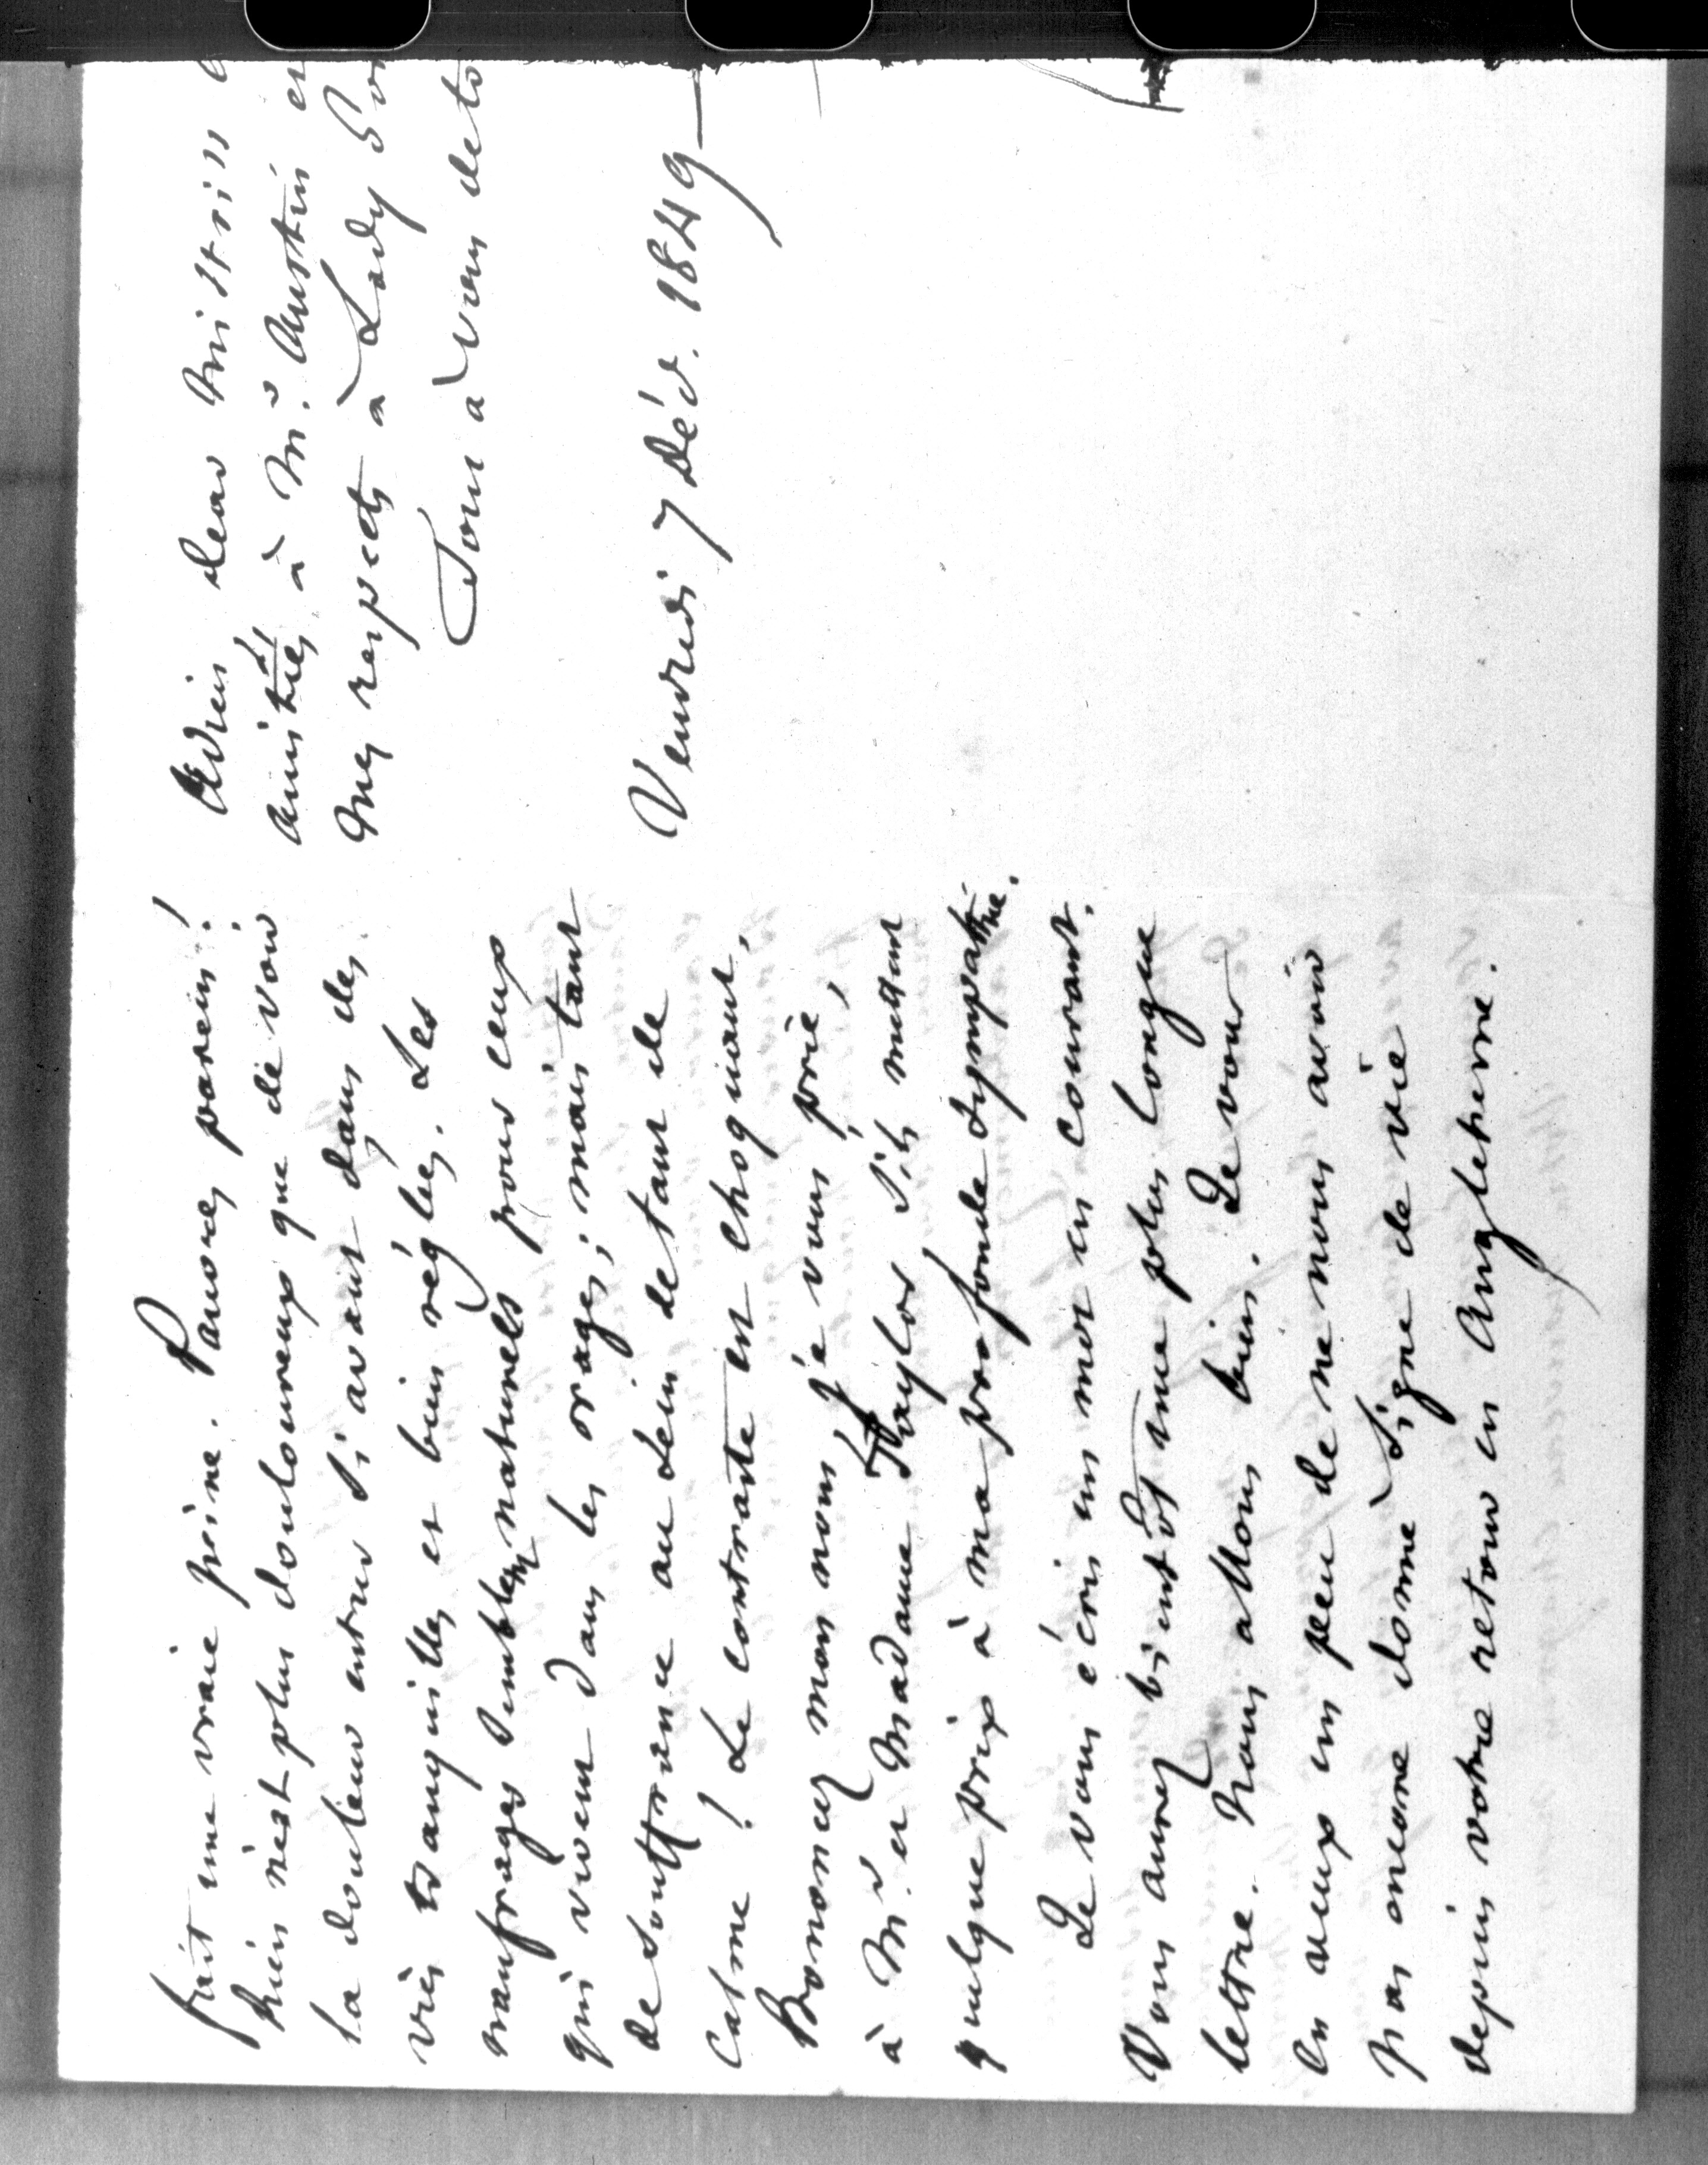 fait une vraie peine. Pauvres parens !
Rien n'est plus douloureux que de voir
la douleur entrer si avant dans des
vies tranquilles et bien réglées. Les
naufrages semblent naturels pour ceux
qui vivent dans les orages ; mais tant
de souffrance au sein de tant de
calme ! Le contraste est choquant.
Prononcez mon nom, je vous prie,
à Mr. et Madame Taylor, s'ils mettent
quelque prix à ma profonde sympathie.
Je vous écris un mot en courant.
Vous aurez bientôt une plus longue
lettre. Nous allons bien. Je vous
en veux un peu de ne nous avoir
pas encore donné signe de vie
depuis votre retour en Angleterre.
Adieu dear
amitiés à Mr. Austin et
mes respects à Lady
Tout à vous de
Vendredi 7 Déc. 1849